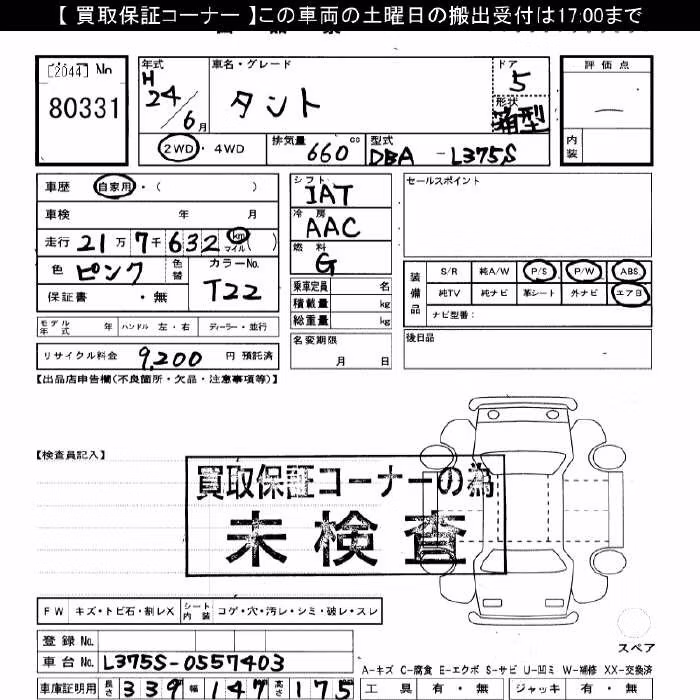 【 買取保証コーナー 】この車両の土曜日の搬出受付は17:00まで
[2044] No
80331
年式
H
24
6月
車名・グレード
タント
ドア
5
形状
箱型
評価点
—
内装
2WD ・ 4WD
排気量 660 cc
型式 DBA - L375S
車歴 自家用・( )
車検 年 月
走行 21万7千632 km マイル ( )
色 ピンク 色替
カラーNo. T22
保証書 ・ 無
モデル年式 年 ハンドル 左・右 ディーラー・並行
リサイクル料金 9,200 円 預託済
シフト IAT
冷房 AAC
燃料 G
乗車定員 名
積載量 kg
総重量 kg
名変期限
月 日
セールスポイント
装備品
S/R 純A/W P/S P/W ABS
純TV 純ナビ 革シート 外ナビ エアB
ナビ型番：
後日品
【出品店申告欄(不良箇所・欠品・注意事項等)】
【検査員記入】
買取保証コーナーの為
未検査
FW キズ・トビ石・割レX シート内装 コゲ・穴・汚レ・シミ・破レ・スレ
登録 No.
車台 No. L375S-0557403
車庫証明用 長さ 339 幅 147 高さ 175
スペア
A-キズ C-腐食 E-エクボ S-サビ U-凹ミ W-補修 XX-交換済
工具 有・無 ジャッキ 有・無